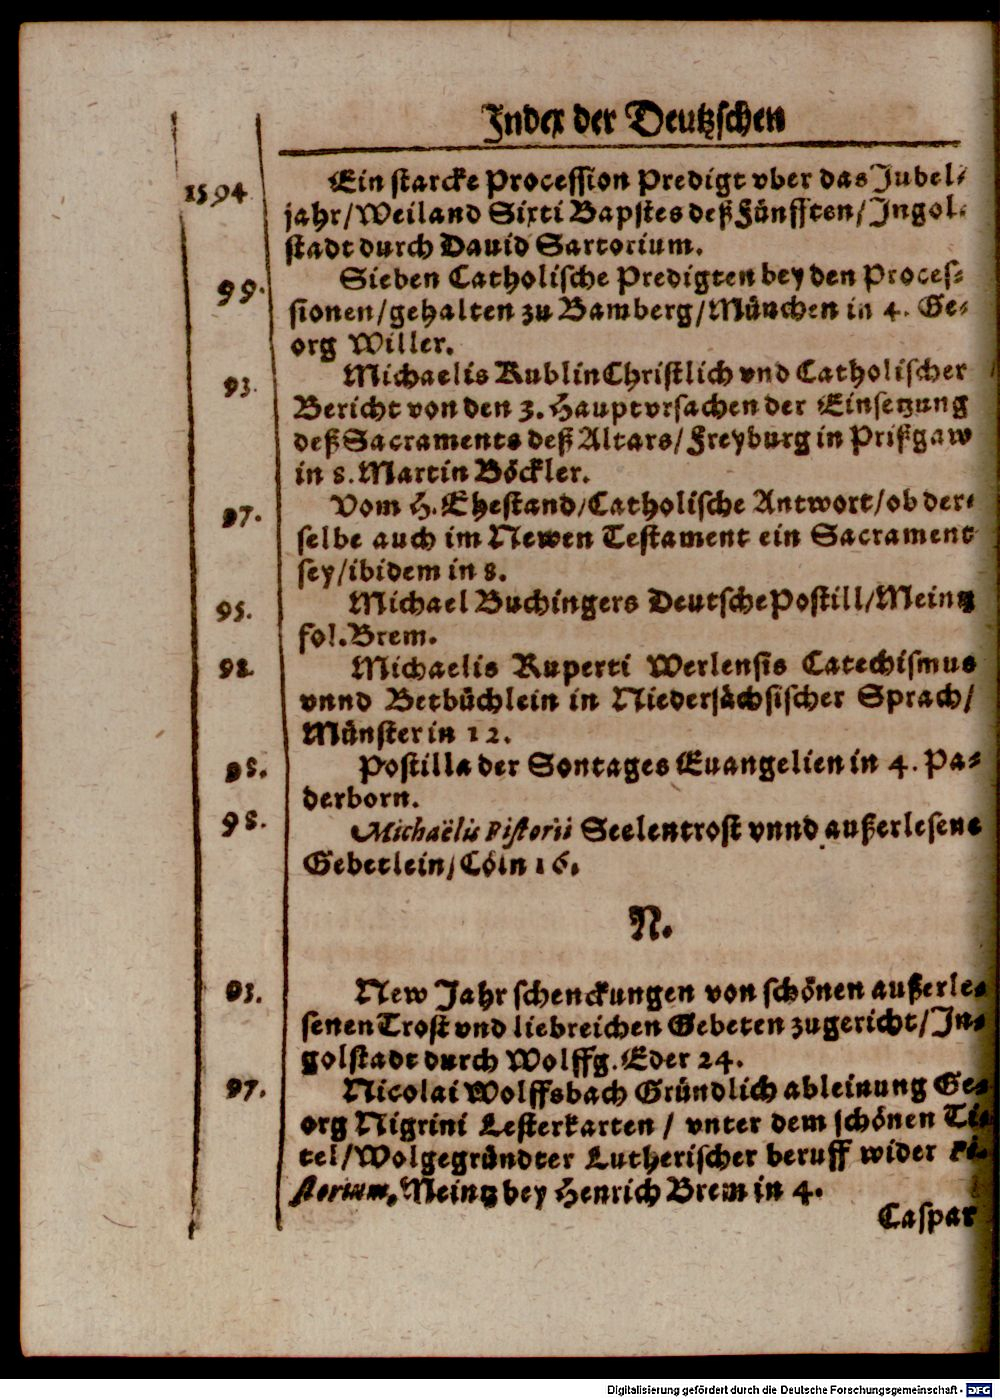 Index der Deutzschen
1594. Ein starcke Procession Predigt vber das Jubel-
jahr/Weiland Sixti Bapstes deß Fünfften/Ingol-
stadt durch Dauid Sartorium.
99. Sieben Catholische Predigten bey den Proces-
sionen/gehalten zu Bamberg/München in 4. Ge-
org Willer.
93. Michaelis Rublin Christlich vnd Catholischer
Bericht von den 3. Hauptvrsachen der Einsetzung
deß Sacraments deß Altars/Freyburg in Prißgaw
in 8. Martin Böckler.
97. Vom H. Ehestand/Catholische Antwort/ob der-
selbe auch im Newen Testament ein Sacrament
sey/ibidem in 8.
95. Michael Buchingers Deutsche Postill/Meintz
fol. Brem.
92. Michaelis Ruperti Werlensis Catechismus
vnnd Betbüchlein in Niedersächsischer Sprach/
Münster in 12.
98. Postilla der Sontages Euangelien in 4. Pa-
derborn.
98. Michaëlis Pistorii Seelentrost vnnd außerlesene
Gebetlein/Cöln 16.
N.
93. New Jahr schenckungen von schönen außerle-
senen Trost vnd liebreichen Gebeten zugericht/In-
golstadt durch Wolffg. Eder 24.
97. Nicolai Wolffsbach Gründlich ableinung Ge-
org Nigrini Lesterkarten / vnter dem schönen Ti-
tel/Wolgegründter Lutherischer beruff wider Pi-
storium, Meintz bey Henrich Brem in 4.
Caspar
Digitalisierung gefördert durch die Deutsche Forschungsgemeinschaft - DFG